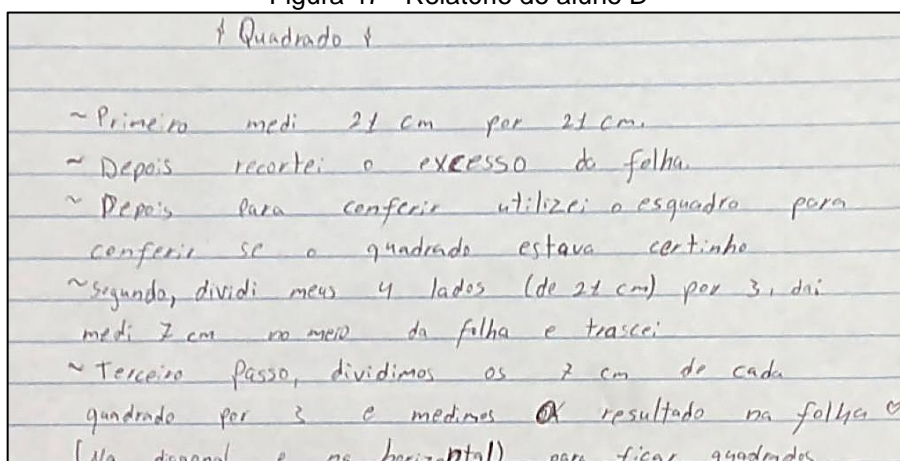 Figura 47 - Relatório do aluno D
Quadrado
~ Primeiro medi 21 cm por 21 cm.
~ Depois recortei o excesso da folha.
~ Depois para conferir utilizei o esquadro para
conferir se o quadrado estava certinho
~ Segundo, dividi meus 4 lados (de 21 cm) por 3, daí
medi 7 cm no meio da folha e trascei
~ Terceiro Passo, dividimos os 7 cm de cada
quadrado por 3 e medimos resultado na folha ♡
(Na diagonal e na horizontal) para ficar quadrados